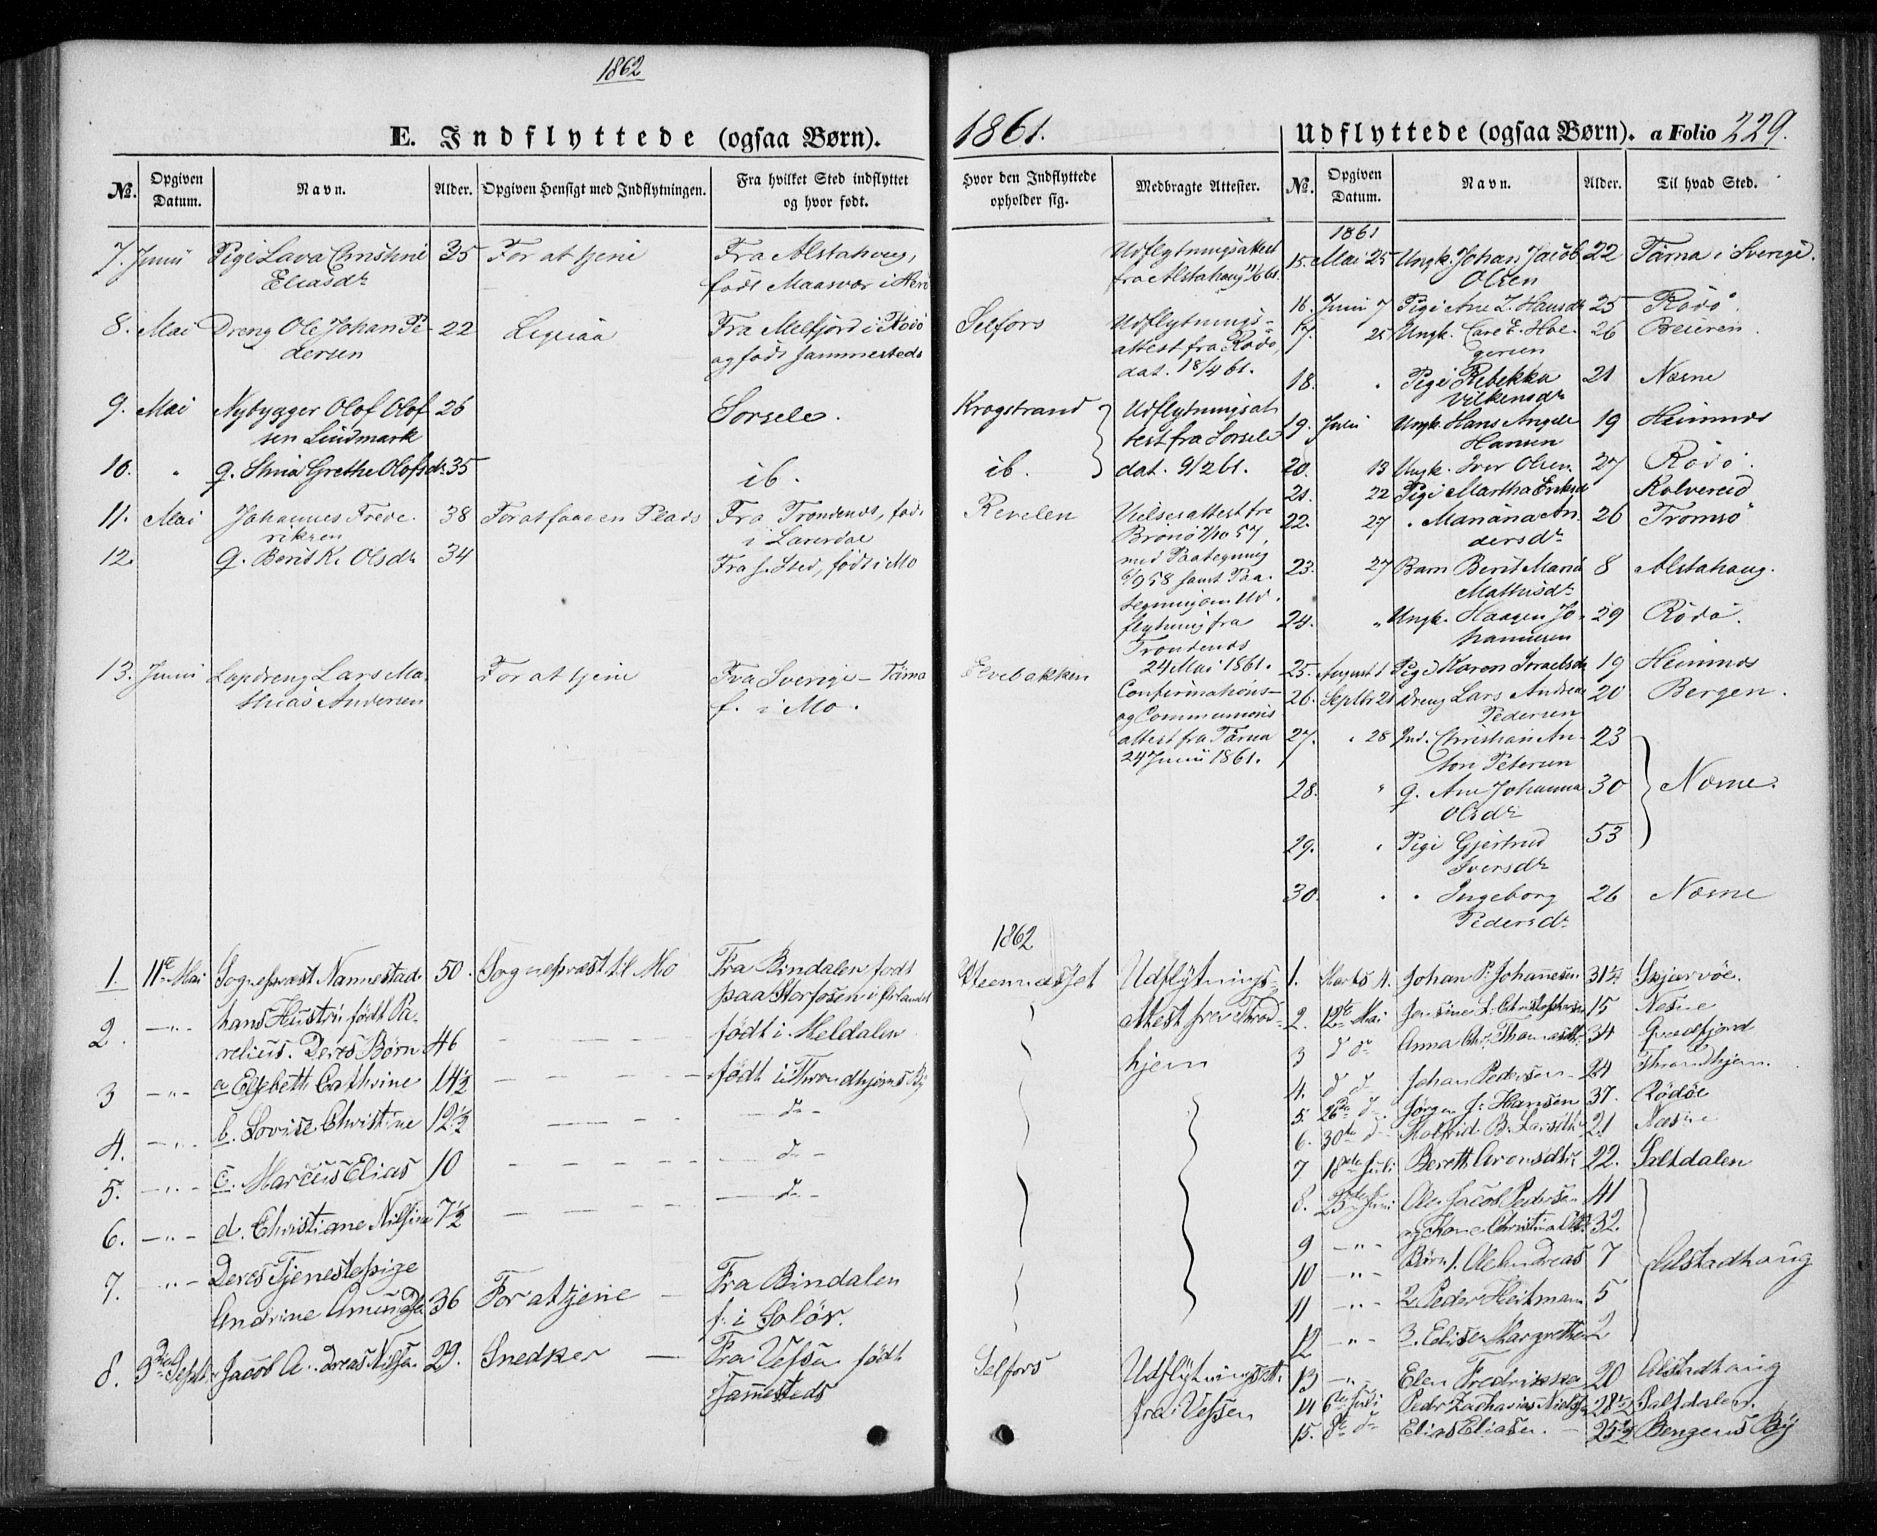 1862
E. Indflyttede (ogsaa Børn).
No. Opgiven Datum. Navn. Alder. Opgiven Hensigt med Indflytningen. Fra hvilket Sted indflyttet og hvor født.
7. Junii Pige Lava Christine 35 For at tjene Fra Alstahoug,
Eliasdr født Maasvær i Herø
8. Mai Dreng Ole Johan Pe- 22 Ligesaa Fra Melfjord i Rødø
dersen og født sammesteds
9. Mai Nybygger Olof Olof 26 Sorsele.
sen Lindmark
10. " q. Stina Grethe Olofsdr 35 ib.
11. Mai Johannes Frede- 38 For at faae en Plads Fra Trondenes, født
riksen i Laverdal
12. q. Berit K. Olsdr 34 Fra s. Sted, født i Mo
13. Junii Lapdreng Lars Ma- For at tjene Fra Sverige - Tärna
thias Andersen f. i Mo.
1. 11te Mai Sognepræst Nannestad 50. Sognepræst til Mo Fra Bindalen født
paa Storfosen i Ørlandet
2. -"- hans Hustru født Pa- født i Meldalen
relius. Deres Børn 46
3 -"- a Elsbeth Cathrine 14½ født i Throndhjems By
4. -"- b. Lovise Christine 12½ - d -
5. -"- c. Marcus Elias 10 - d -
6. -"- d. Christiane Nilsine 7½ - d -
7. -"- Deres Tjenestepige Fra Bindalen
Andrine Amundsdr 36 For at tjene f. i Solør.
8. 3die Septbr Jacob Andreas Nilsen 29. Snedker Fra Vefsen født
Sammesteds
1861.
Udflyttede (ogsaa Børn). a Folio 229.
Hvor den Indflyttede opholder sig. Medbragte Attester. No. Opgiven Datum. Navn. Alder. Til hvad Sted.
Udflytningsattest
fra Alstahoug
Selfors Udflytnings-
attest fra Rødø,
dat. 18/4 61.
Krogstrand Udflytningsat
test fra Sorsele
ib. dat. 9/2 61.
Revelen Vielsesattest fra
Brønø 7/10 57,
med Paategning
6/9 58 samt Paa-
tegning om Ud-
flytning fra
Trondenes
24 Mai 1861.
Elvebakken Confirmations-
og Communions
attest fra Tärna
24 Junii 1861.
1862
Udflytnings-
Attest fra Thrond-
hjem
Selfors Udflytningsatt.
fra Vefsen
1861
15. Mai 25 Ungk. Johan Jacob 22 Tärna i Sverige.
Olsen
16. Junii 7 Pige Ane L. Hansdr 25 Rødø.
17. 25 Ungk. Carl E. Hol- 26 Beieren.
gersen
18. " Pige Rebekka 21 Næsne
Vilkensdr
19. Julii Ungk. Hans Angel 19 Hemnæs
Hansen
20. 13 Ungk. Iver Olsen 27 Rødø.
21. 22 Pige Martha Eriksdr Kolvereid
22. 27 " Mariana An- 26 Tromsø
dersdr
23. 27 Barn Berit Maria 8 Alstahaug.
Mathisdr
24. " Ungk. Haagen Jo- 29 Rødø.
hannesen
25. August 1 Pige Karen Israelsdr 19 Hemnæs
26. Septbr 21 Dreng Lars Andreas 20 Bergen.
Pedersen
27. " 28 Ind. Christian An- 23
ton Petersen
28. " q. Ane Johanna 30 Næsne.
Olsdr
29. " Pige Gjertrud 53
Iversdr
30. " " Ingeborg 26 Næsne
Pedersdr
1. Marts 4. Johan P. Johannesen 31½ Skjærvöe.
2. 12te Mai Jensine L. Christophersdr 15 Nesne
3 d d Anna Chr. Thomasdtr 34 Qvædfjord
4. d d Johan Pedersen 24 Throndhjem.
5. 26de d Jørgen J. Hansen 37. Rødøe
6. 30te d B. Larsdtr 21 Næsne
7 18de Juli Bereth Aronsdtr 22. Saltdalen
8. 23de Juni Ole Jacob Pedersen 41
9 -"- og Kone Christina 32.
10 -"- Børn 1. Ole Andreas 7 Alstadhoug
11 -"- 2 Peder Heitmann 5
12 -"- 3. Elise Margrethe 2
13 -"- Elen Fredrikka 20 Alstadhaug
14 6te Juli Peder Zacharias Nielsen 28½ Saltdalen.
15. 8de d Elias Eliasen. 25½ Bergens By